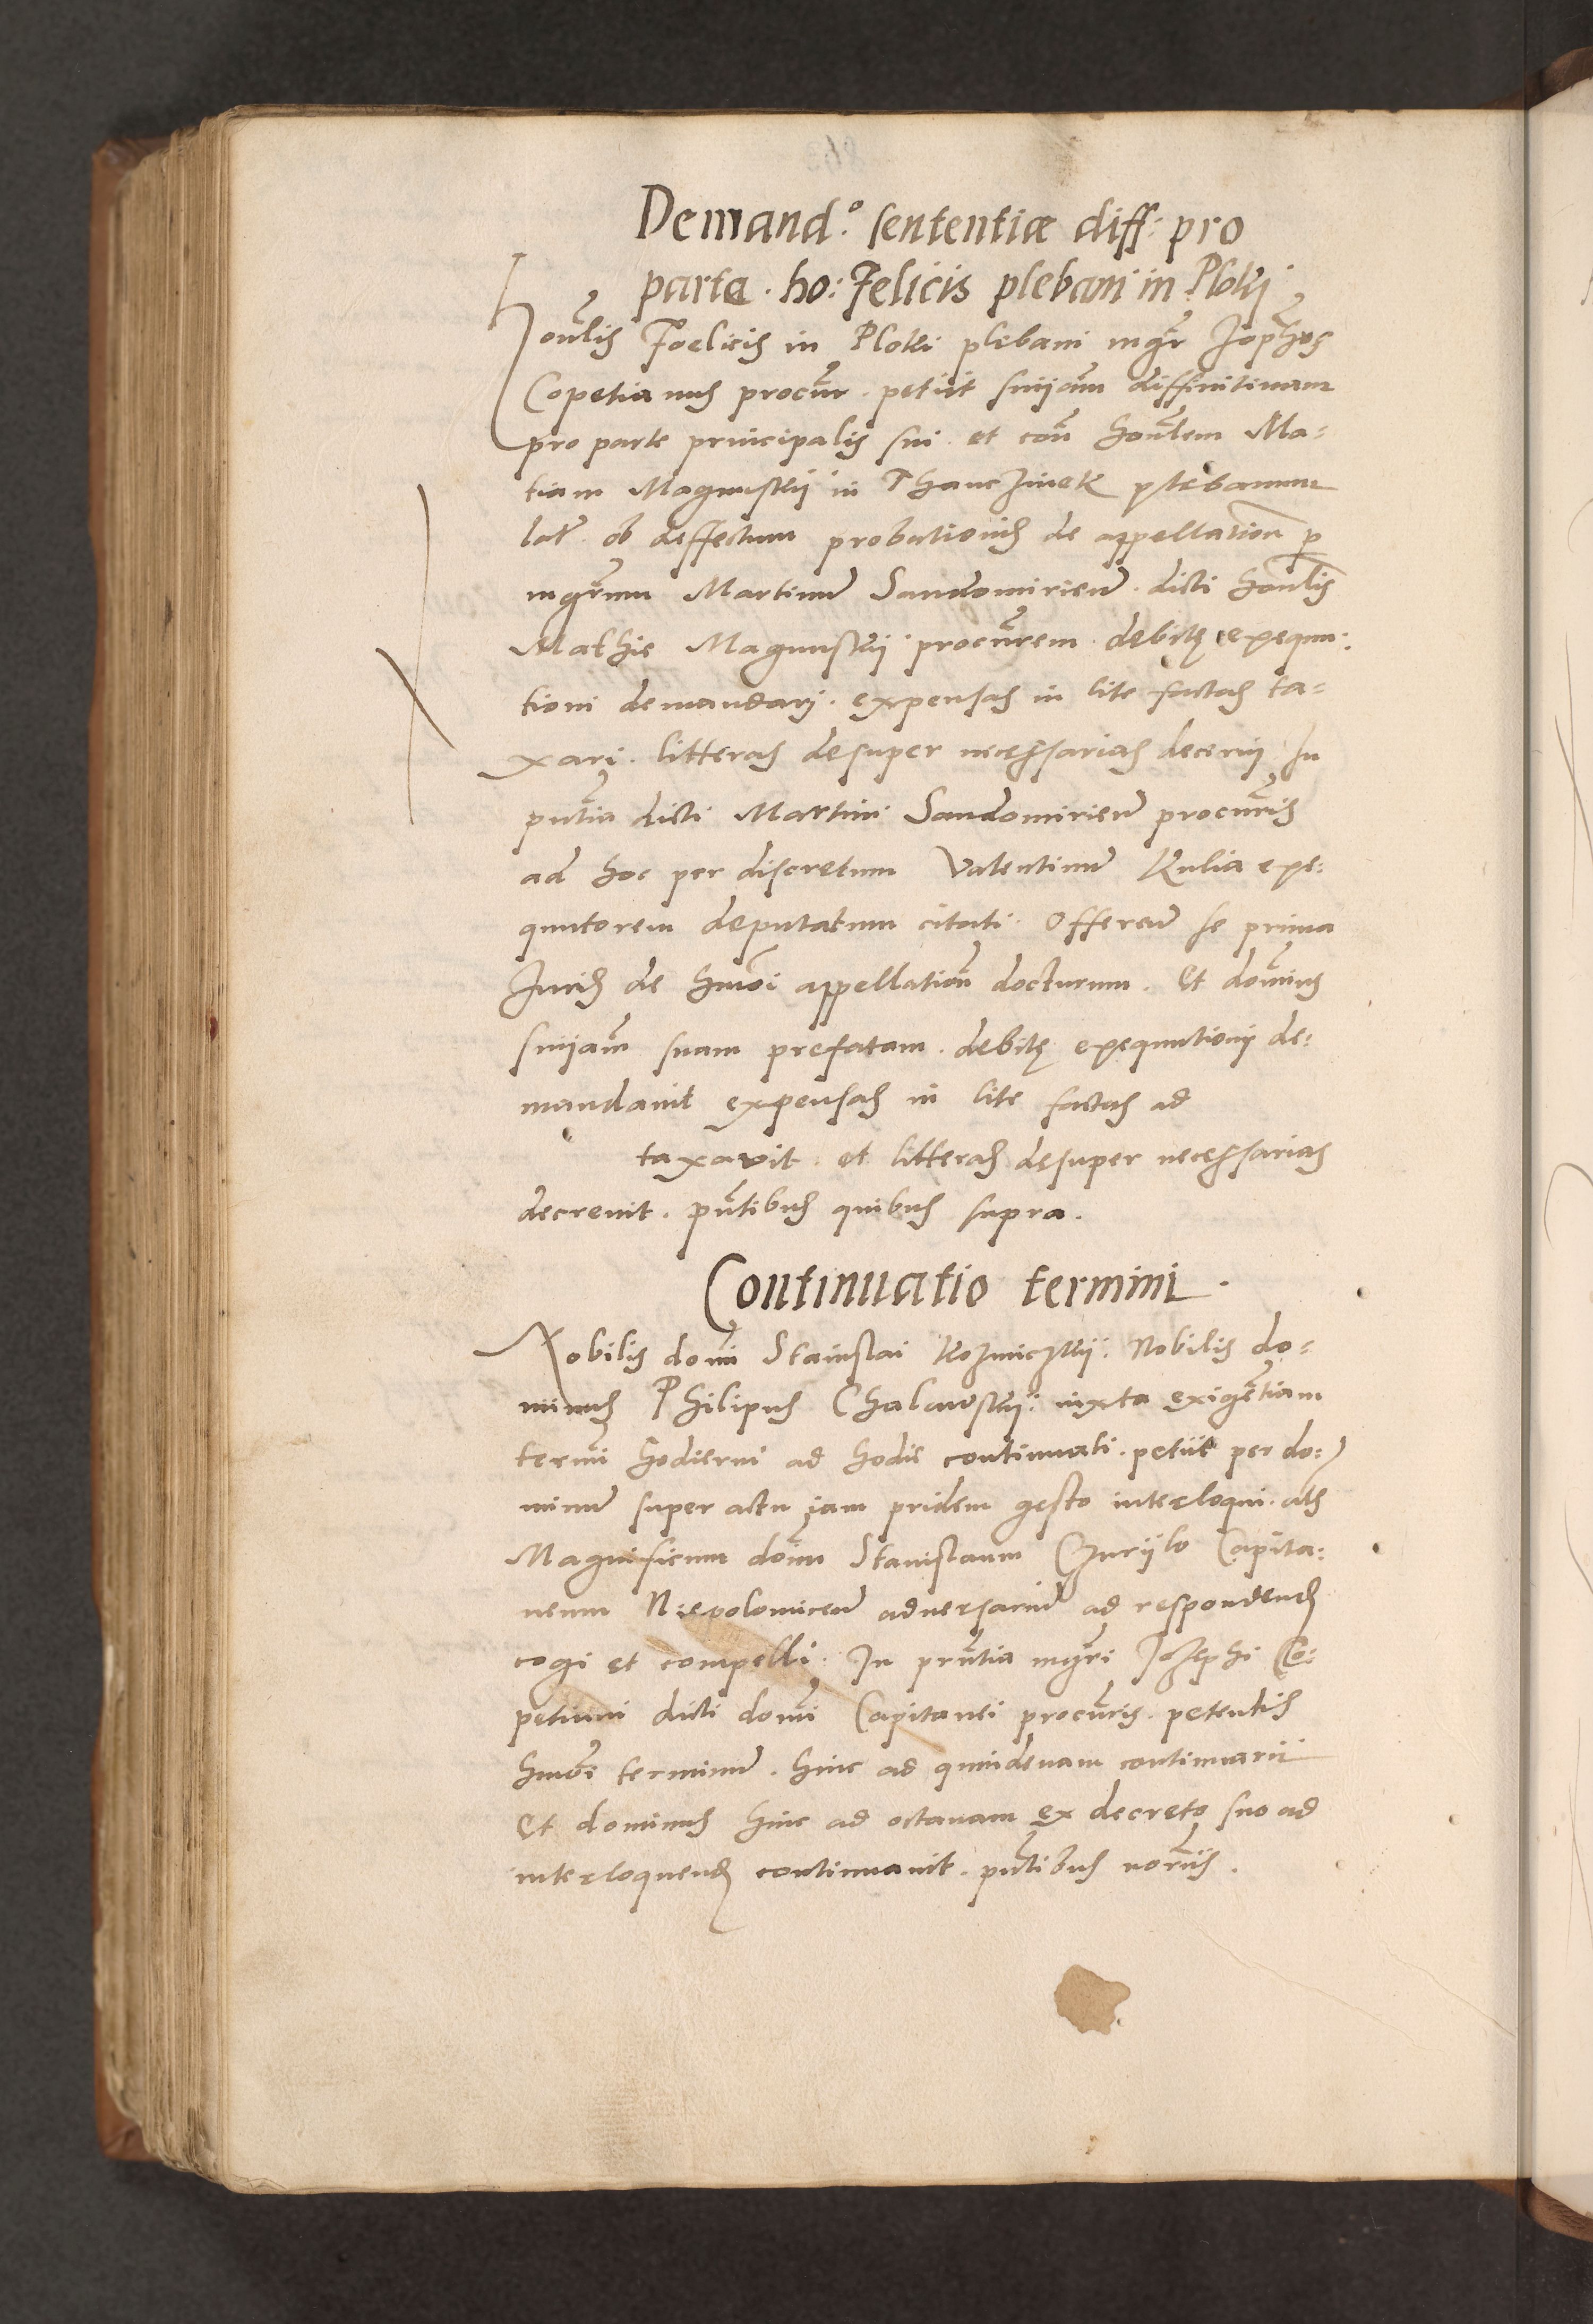 Demand.º sententiæ diff: pro
parte . ho: Felicis plebani in Ploki
Honlis Foelicis in Ploki plebani mgr Jophus
Copetianus procur . petiit sniam diffinitivam
pro parte principalis sui . et con honlem Ma=
tiam Magnuskii in Thanczinek plebanum
lat . ob deffectum probationis de appellation p
mgrum Martinum Sandomirien . dicti honlis
Mathie Magnuskii procurem . debitę exequu:
tioni demandari . expensas in lite factas ta=
xari . litteras desuper necessarias decerni In
pntia dicti Martini Sandomirien procuris
ad hoc per discretum Valentinum Kulia exe:
quutorem deputatum citati . Offeren se prima
Juridi de hmoi appellation docturum . Et dominus
sniam suam prefatam . debitę exequutioni de:
mandavit expensas in lite factas ad
taxavit . et litteras desuper necessarias
decrevit . pntibus quibus supra .
Continuatio termini .
Nobilis domi Stanislai Kozmiczkii . Nobilis do=
minus Philipus Chalawskii . iuxta exigentiam
termi hodierni ad hodie continuati . petiit per do:
minum super actu jam pridem gesto interloqui . atq
Magnificum domum Stanislaum Czuryło Capita:
neum Niepolomicen adversarium ad respondend
cogi et compelli . In prntia mgri Jozephi Co:
petiani dicti domi Capitanei procuris . petentis
hmoi terminum . hinc ad quindenam continuari
Et dominus hinc ad octavam ex decreto suo ad
interloquend continuavit . pntibus noriis .